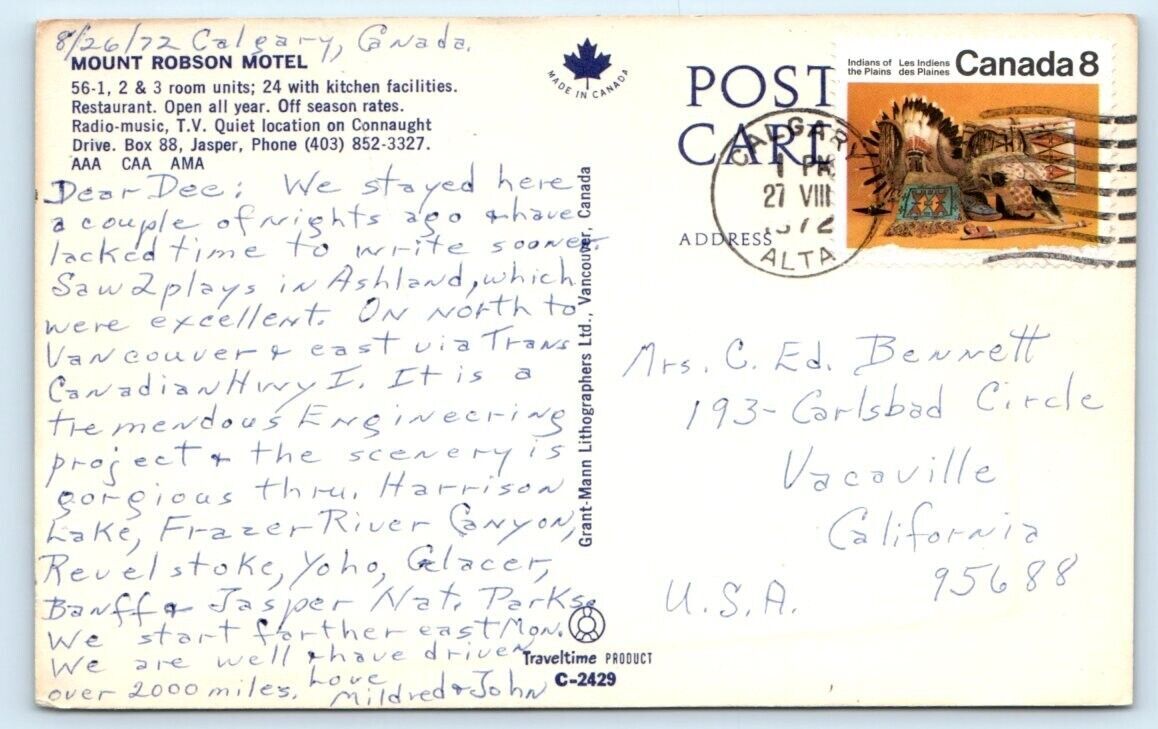 8/26/72 Calgary, Canada.
MOUNT ROBSON MOTEL
56-1, 2 & 3 room units; 24 with kitchen facilities.
Restaurant. Open all year. Off season rates.
Radio-music, T.V. Quiet location on Connaught
Drive. Box 88, Jasper, Phone (403) 852-3327.
AAA CAA AMA
Dear Dee: We stayed here
a couple of nights ago & have
lacked time to write sooner.
Saw 2 plays in Ashland, which
were excellent. On north to
Vancouver & east via Trans
Canadian Hwy I. It is a
tremendous Engineering
project & the scenery is
gorgious thru. Harrison
Lake, Frazer River Canyon,
Revelstoke, Yoho, Glacer,
Banff & Jasper Nat. Parks.
We start farther east Mon.
We are well & have driven
over 2000 miles. Love
Mildred & John
MADE IN CANADA
Grant-Mann Lithographers Ltd., Vancouver, Canada
Traveltime PRODUCT
C-2429
POST
CARD
ADDRESS
Indians of the Plains
Les Indiens des Plaines
Canada 8
CALGARY
1 PM
27 VIII
1972
ALTA
Mrs. C. Ed. Bennett
193-Carlsbad Circle
Vacaville
California
95688
U.S.A.